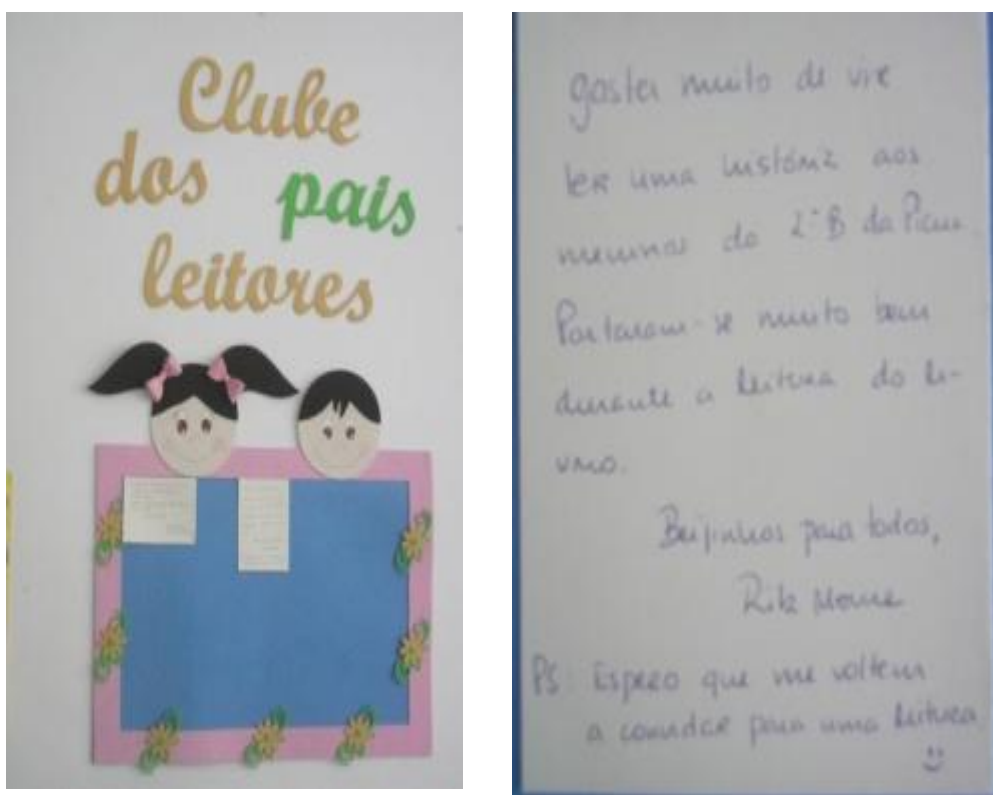 Clube
dos pais
leitores
gostei muito de vir
ler uma história aos
meninos do 2º B da
Portaram-se muito bem
durante a leitura do li-
vro.
Beijinhos para todos,
Rita
PS: Espero que me voltem
a convidar para uma leitura